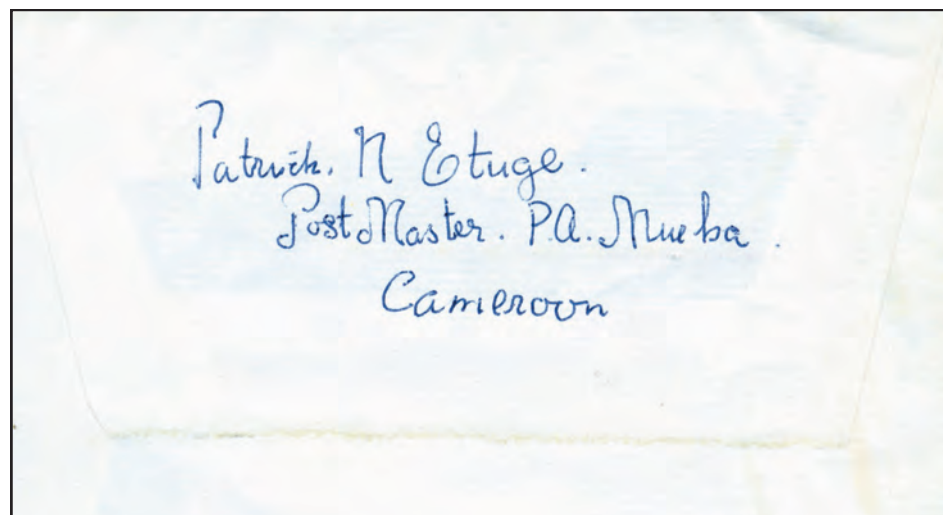 Patrick. N Etuge.
PostMaster. P.A. Mueba.
Cameroon